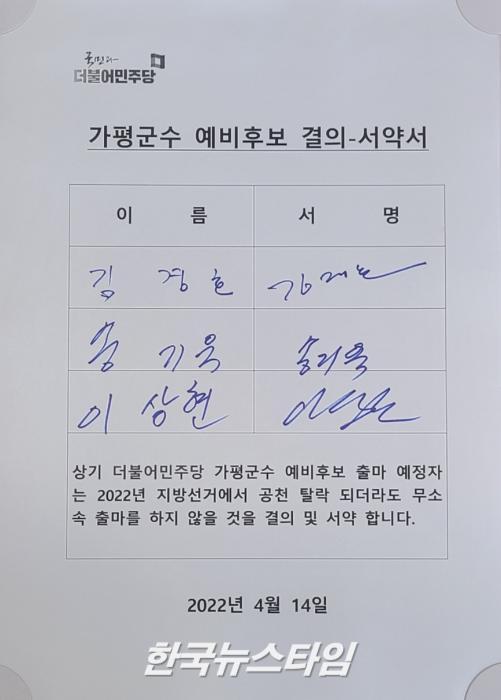 국민과
더불어민주당
가평군수 예비후보 결의-서약서
이 름 서 명
김 경호
송 기욱 송기욱
이 상현
상기 더불어민주당 가평군수 예비후보 출마 예정자
는 2022년 지방선거에서 공천 탈락 되더라도 무소
속 출마를 하지 않을 것을 결의 및 서약 합니다.
2022년 4월 14일
한국뉴스타임